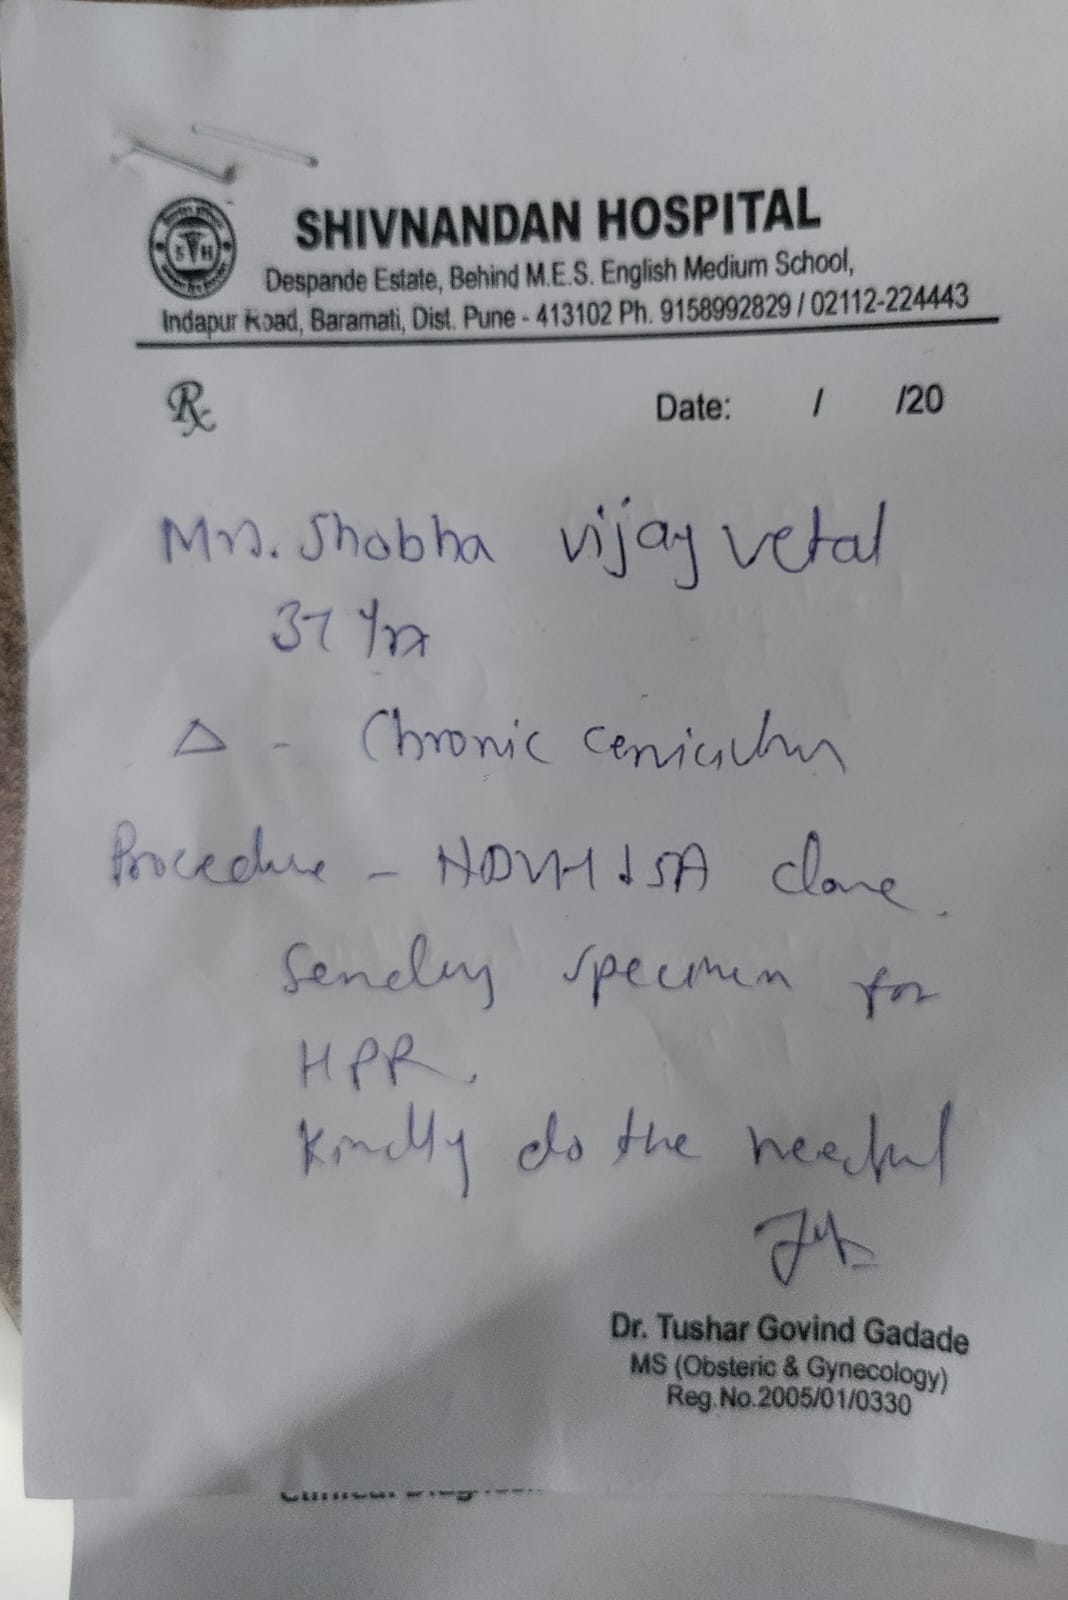 SHIVNANDAN HOSPITAL
S H
Despande Estate, Behind M.E.S. English Medium School,
Indapur Road, Baramati, Dist. Pune - 413102 Ph. 9158992829 / 02112-224443
Rx
Date: / /20
Mrs. Shobha Vijay Vetal
37 yrs
△ - Chronic
Procedure - NDVH done.
Sending specimen for
HPR.
Kindly do the needful
Dr. Tushar Govind Gadade
MS (Obsteric & Gynecology)
Reg.No.2005/01/0330